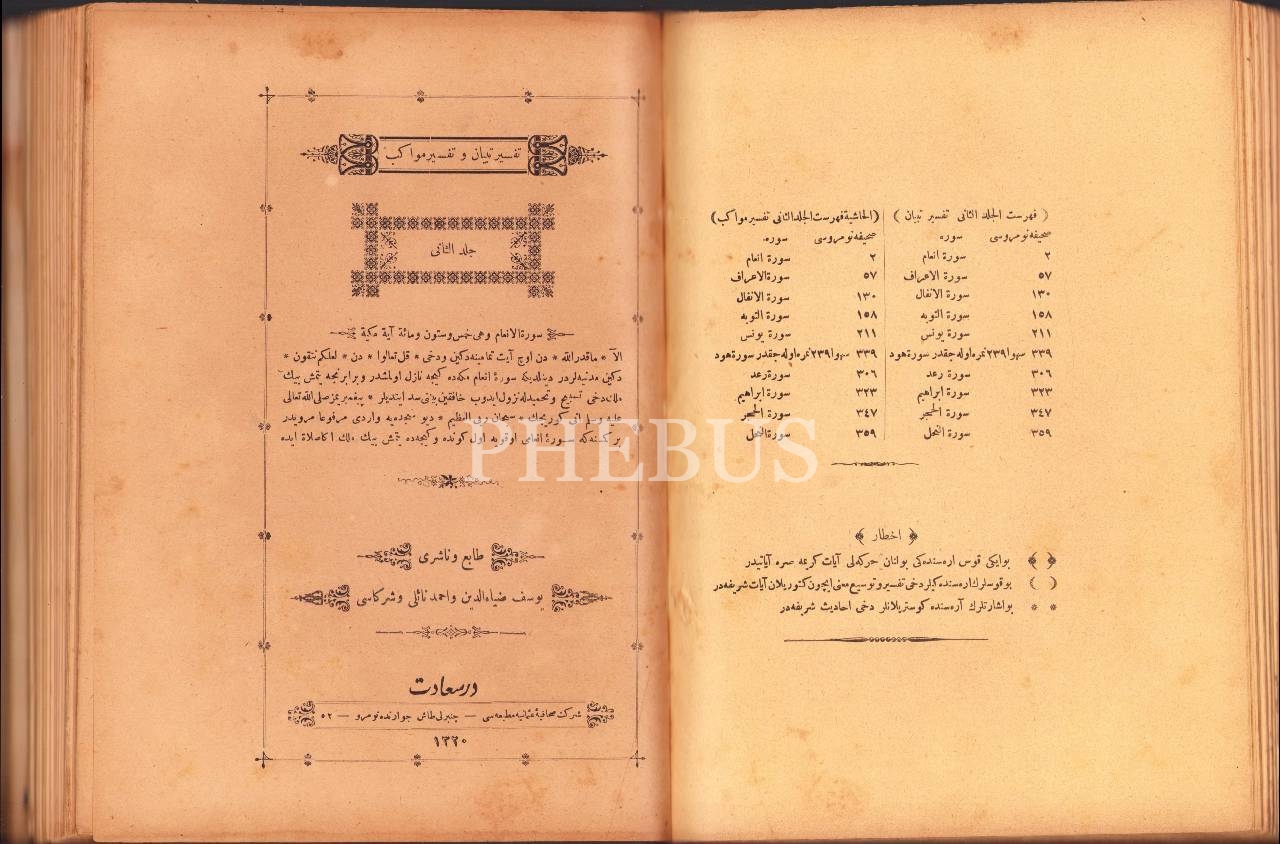 ( فهرست الجلد الثانى تفسير تبيان )
صحيفه نومروسى سوره
٢ سورة انعام
٥٧ سورة الاعراف
١٣٠ سورة الانفال
١٥٨ سورة التوبه
٢١١ سورة يونس
٣٣٩ سهوا ٢٣٩ نمره اوله جقدر سورة هود
٣٠٦ سورة رعد
٣٢٣ سورة ابراهيم
٣٤٧ سورة الحجر
٣٥٩ سورة النحل
(الحاشية فهرست الجلد الثانى تفسير مواكب)
صحيفه نومروسى سوره
٢ سورة انعام
٥٧ سورة الاعراف
١٣٠ سورة الانفال
١٥٨ سورة التوبه
٢١١ سورة يونس
٣٣٩ سهوا ٢٣٩ نمره اوله جقدر سورة هود
٣٠٦ سورة رعد
٣٢٣ سورة ابراهيم
٣٤٧ سورة الحجر
٣٥٩ سورة النحل
﴿ اخطار ﴾
﴿ ﴾ بوايكى قوس اره سنده كى بولنان حركه لى آيات كريمه صره آياتيدر
( ) بوقوسلرك اره سنده كيلر دخى تفسير و توسيع معنى ايچون كتوريلان آيات شريفه در
* * بواشارتلرك آره سنده كوستريلانلر دخى احاديث شريفه در
تفسير تبيان و تفسير مواكب
جلد الثانى
سورة الانعام وهى خمس وستون ومائة آية مكية
الا * ماقدر الله * دن اوچ آيت تمامينه دكين ودخى * قل تعالوا * دن * لعلكم تتقون *
دكين مدنيه لردر دينلديكه سورۀ انعام مكه ده كيجه نازل اولمشدر وبرابرنجه يتمش بيك
ملك دخى تسبيح وتحميدله نزول ايدوب خافقين بينى سد ايتديلر * پيغمبرمز صلى الله تعالى
عليه وسلم انى كوريجك * سبحان ربى العظيم * ديو سجده يه واردى مرفوعا مرويدر
بر كمسنه كه سورۀ انعامى اوقويه اول كونده وكيجه ده يتمش بيك ملك اكا صلاة ايده
طابع وناشرى
يوسف ضياء الدين واحمد نائلى وشركاسى
درسعادت
شركت صحافيۀ عثمانيه مطبعه سى — چنبرلى طاش جوارنده نومرو — ٥٢
١٣٢٠
PHEBUS